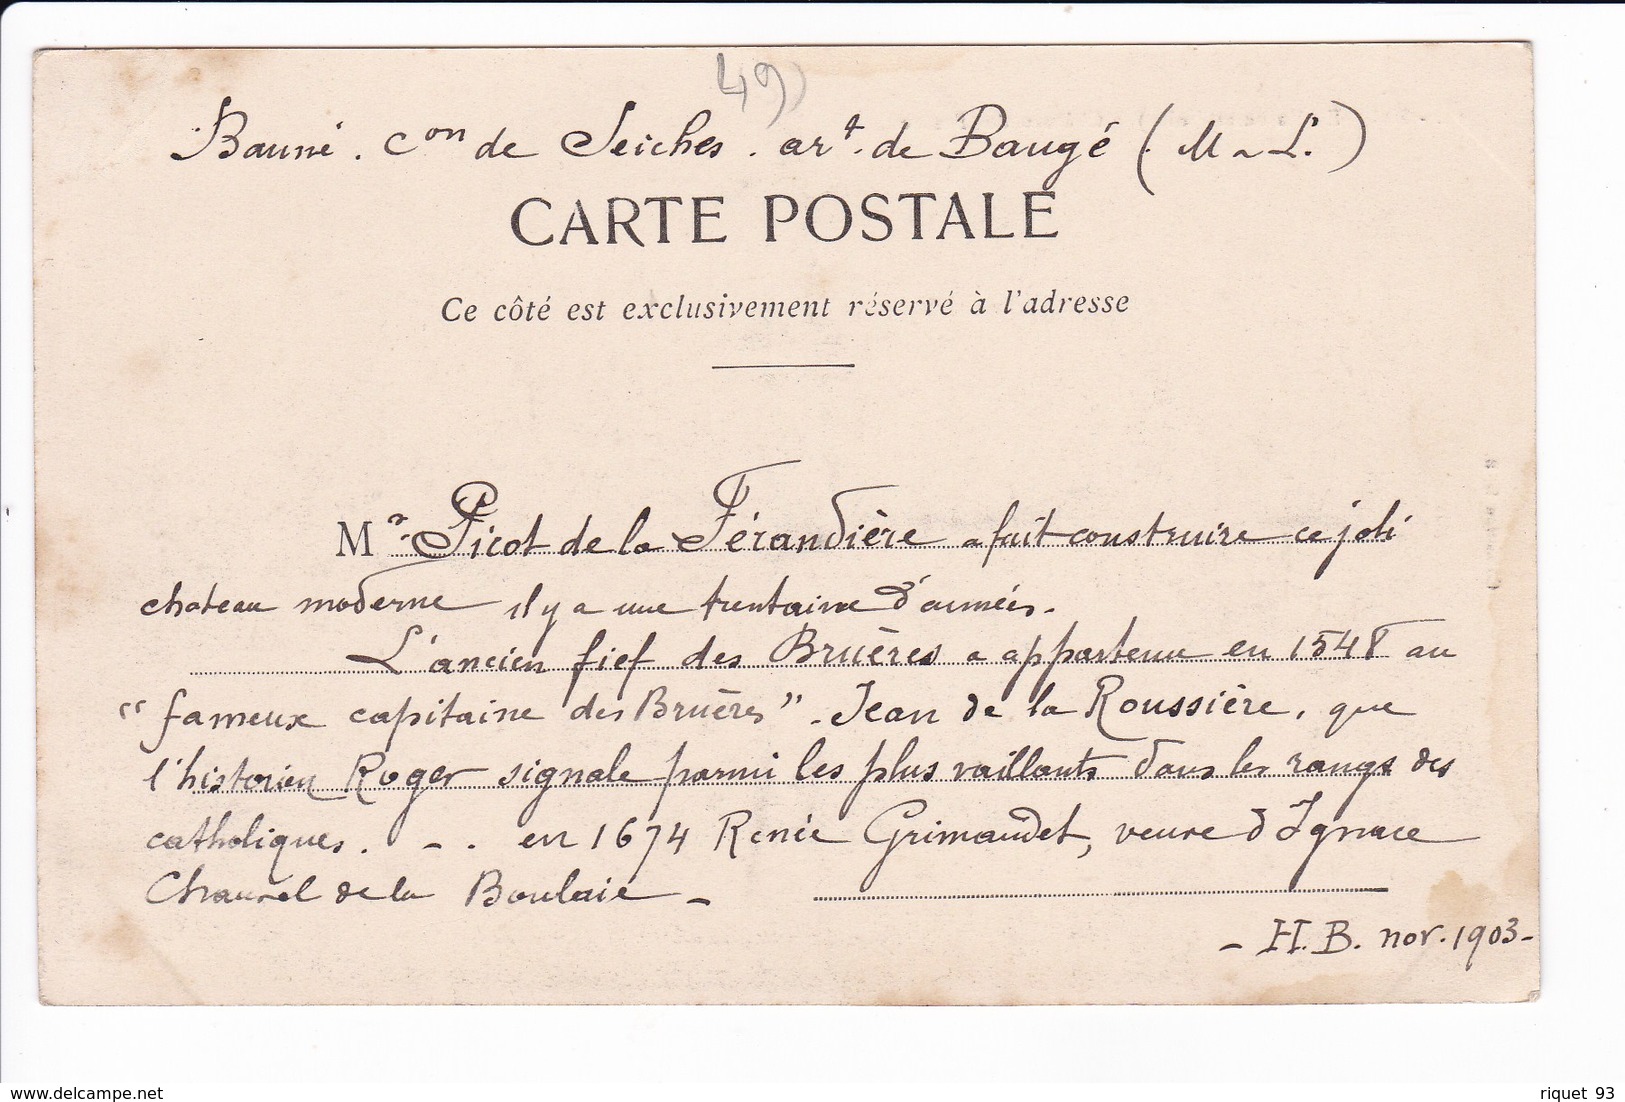 49
Bauné. Con de Seiches. art. de Baugé (M-L.)
CARTE POSTALE
Ce côté est exclusivement réservé à l'adresse
Mr Picot de la Férandière a fait construire ce joli
chateau moderne il y a une trentaine d'années.
L'ancien fief des Bruères a appartenu en 1548 au
"fameux capitaine des Bruères" - Jean de la Roussière, que
l'historien Roger signale parmi les plus vaillants dans les rangs des
catholiques. - . en 1674 Renée Grimaudet, veuve d'Ignace
Chauvel de la Boulaie -
- H.B. nov. 1903 -
delcampe.net
riquet 93